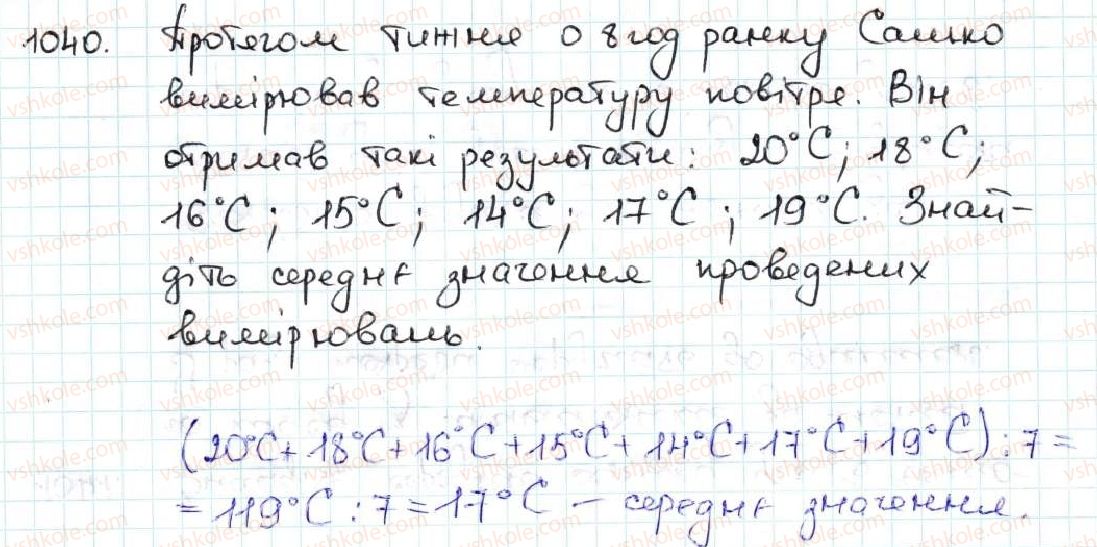 1040. Протягом тижня о 8 год ранку Сашко
вимірював температуру повітря. Він
отримав такі результати: 20°C; 18°C;
16°C; 15°C; 14°C; 17°C; 19°C. Знай-
діть середнє значення проведених
вимірювань.
(20°C+18°C+16°C+15°C+14°C+17°C+19°C):7=
=119°C:7=17°C – середнє значення.